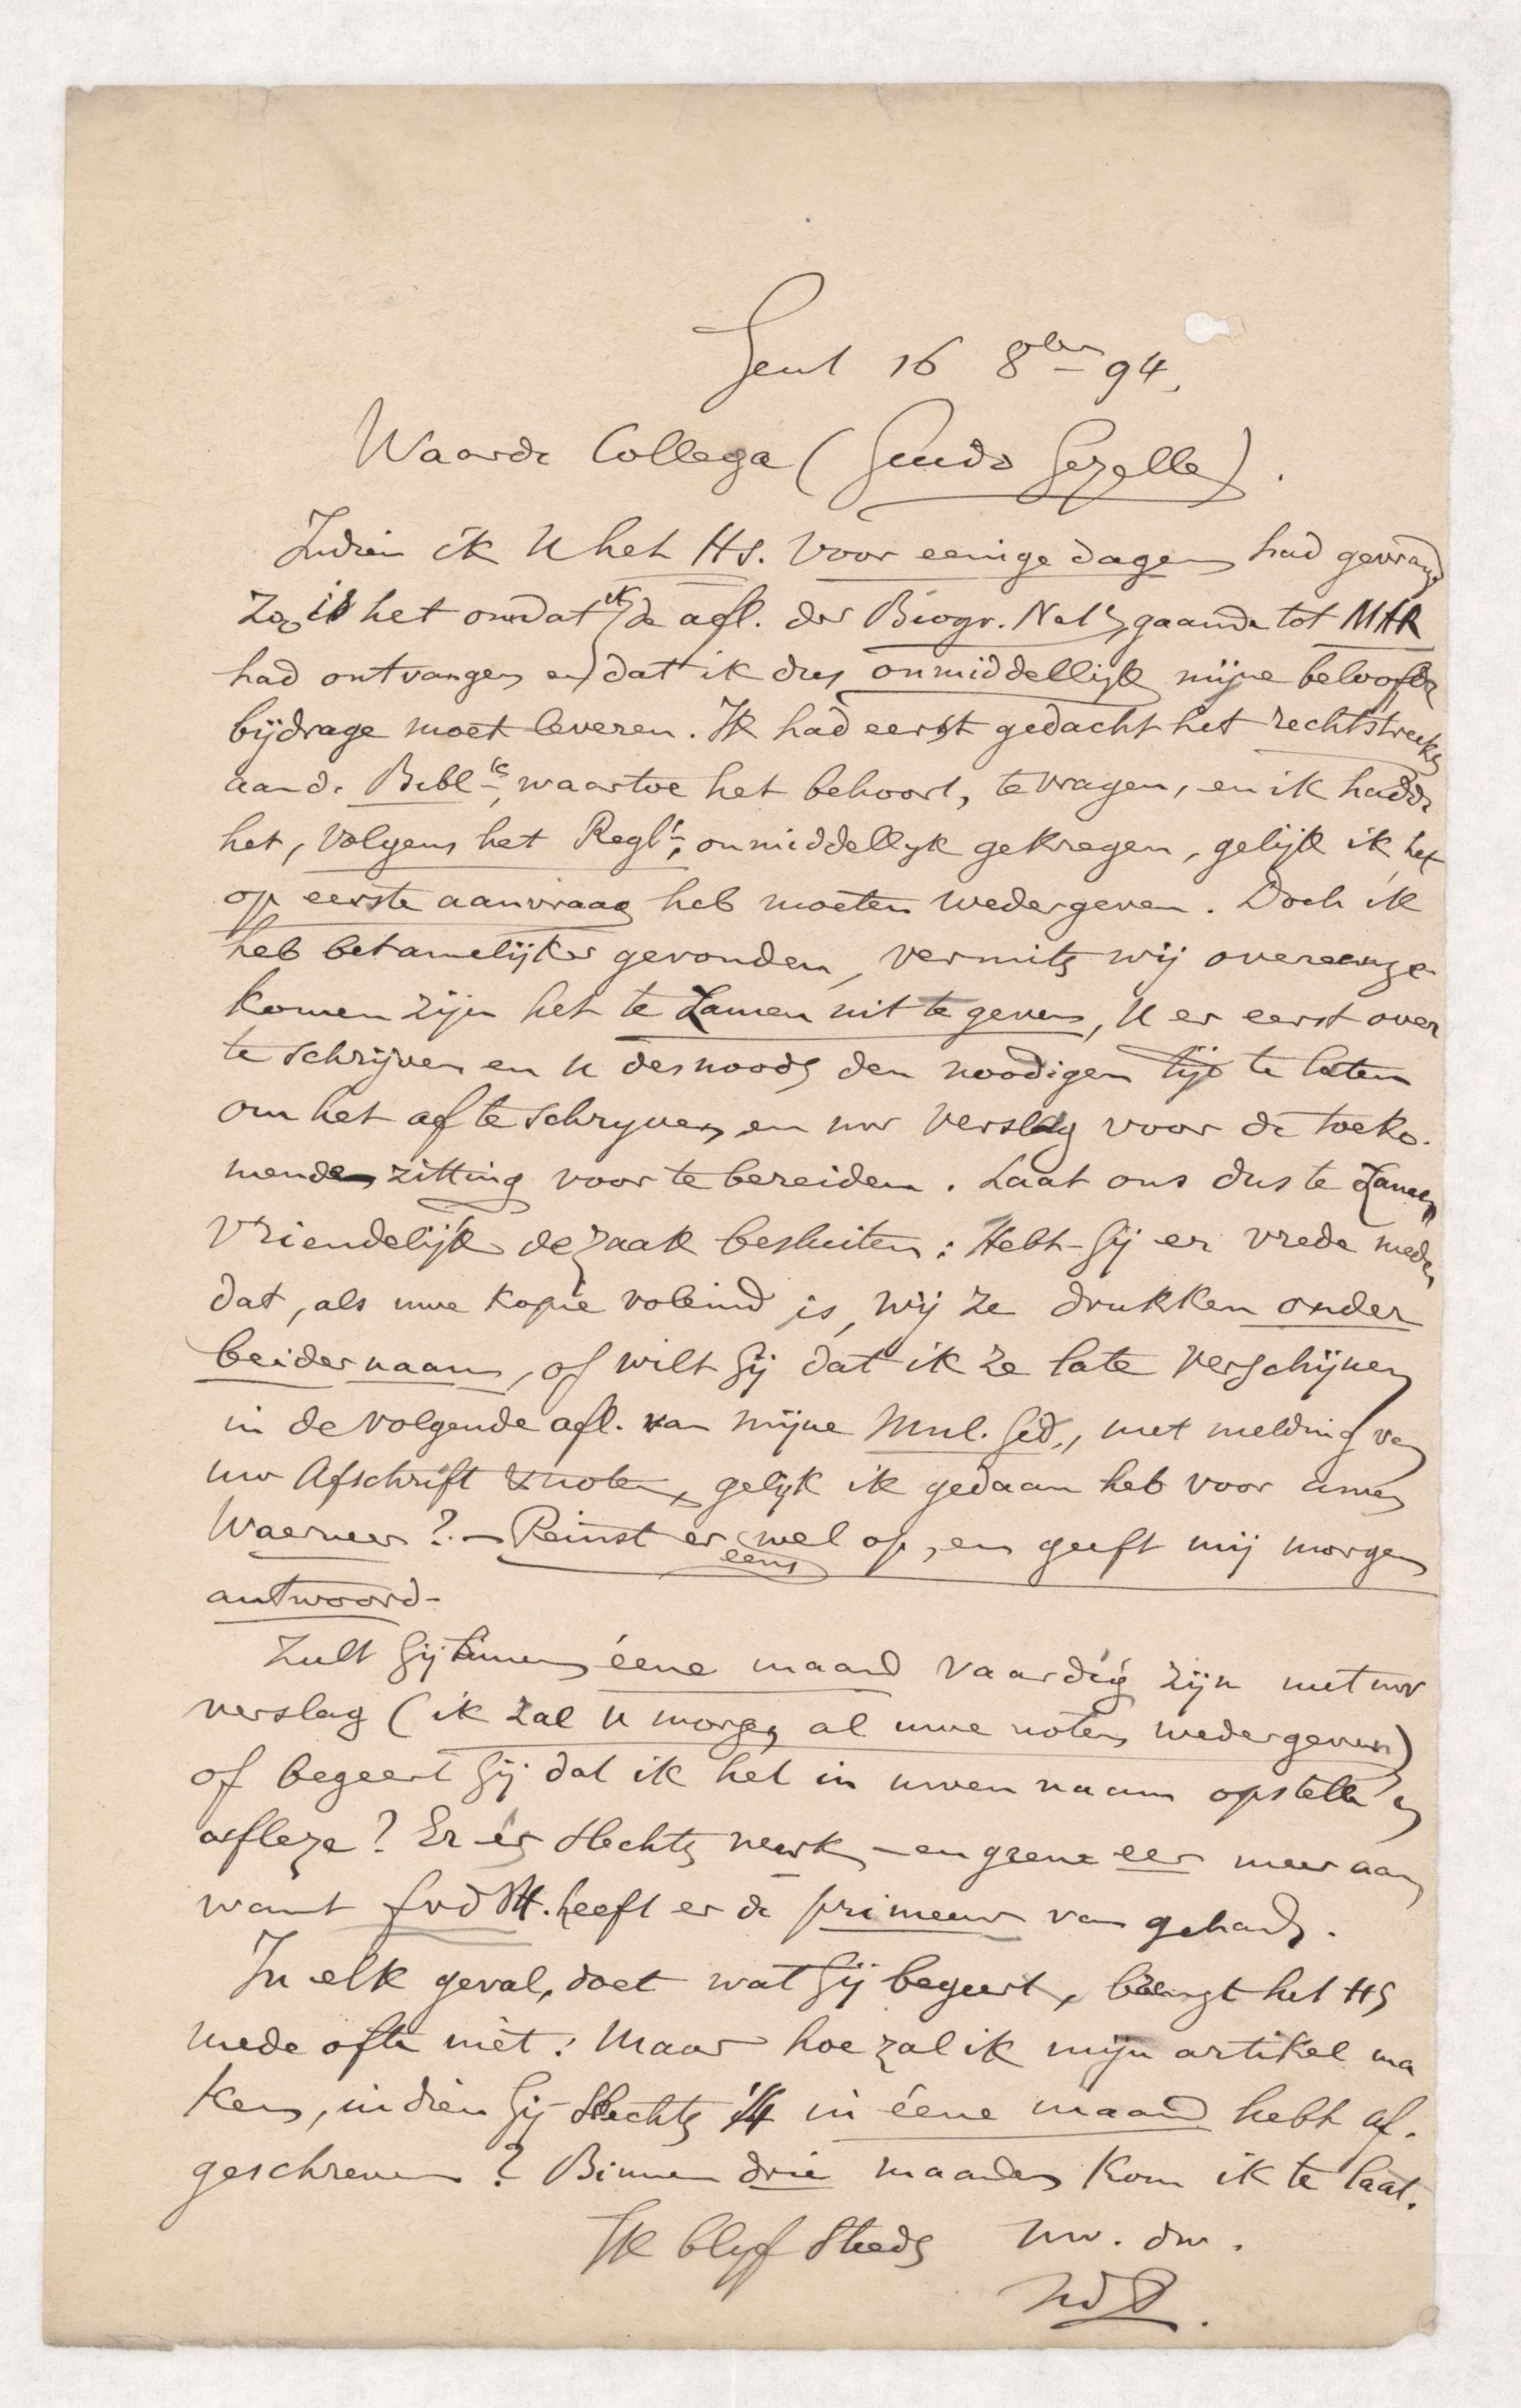 Gent 16 8ber 94.
Waarde Collega (Guido Gezelle).
Indien ik U het Hs. voor eenige dagen had gevraagd
zoo is het omdat ik de afl. der Biogr. Nat. gaande tot MAR
had ontvangen en dat ik dus onmiddellijk mijne beloofde
bijdrage moet leveren. Ik had eerst gedacht het rechtstreeks
aan de Bibl., waartoe het behoort, te vragen, en ik hadde
het, volgens het Reglt, onmiddellyk gekregen, gelijk ik het
op eerste aanvraag heb moeten wedergeven. Doch ik
heb betamelijker gevonden, vermits wij overeenge
komen zijn het te zamen uit te geven, U er eerst over
te schrijven en U desnoods den noodigen tijd te laten
om het af te schryven en uw verslag voor de toeko-
mende zitting voor te bereiden. Laat ons dus te zamen
vriendelijk de zaak besluiten: Hebt Gij er vrede mede,
dat, als uwe kopie voleind is, wij ze drukken onder
beider naam, of wilt Gij dat ik ze late verschijnen
in de volgende afl. van mijne Mnl. Ged., met melding van
uw Afschrift & noten, gelyk ik gedaan heb voor
Waerneer? — Peinst er eens wel op, en geeft mij morgen
antwoord-
Zult Gij binnen éene maand vaardig zijn met uw
verslag (ik zal U morgen al uwe noten wedergeven)
of begeert Gij dat ik het in uwen naam opstelle en
afleze? Er is slechts werk - en geene eer meer aan
want FvdH. heeft er de primeur van gehad.
In elk geval, doet wat Gij begeert, brengt het HS
mede ofte niet: Maar hoe zal ik mijn artikel ma
ken, indien Gij slechts 1/4 in éene maand hebt af-
geschreven? Binnen drie maanden kom ik te laat.
Ik blyf steeds Uw. dw.
NdP.